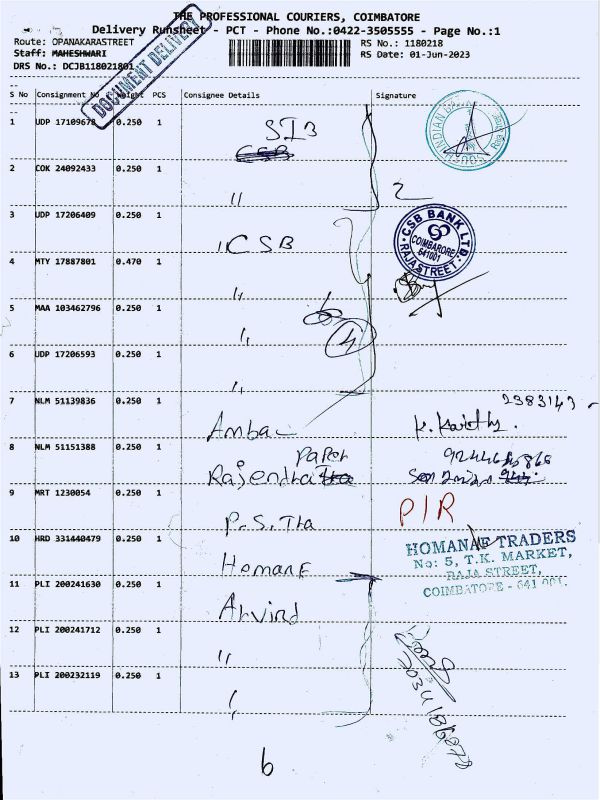 THE PROFESSIONAL COURIERS, COIMBATORE
Delivery Runsheet - PCT - Phone No.:0422-3505555 - Page No.:1
Route: OPANAKARASTREET
RS No.: 1180218
Staff: MAHESHWARI
RS Date: 01-Jun-2023
DRS No.: DCJB118021801
DOCUMENT DELIVERY
S No Consignment No Weight PCS Consignee Details Signature
1 UDP 1710967 0.250 1 SIB
CSB
INDIAN
2 COK 24092433 0.250 1 "
3 UDP 17206409 0.250 1 " CSB
CSB BANK LTD
COIMBATORE
641001
RAJA STREET
4 MTY 17887801 0.470 1 "
5 MAA 103462796 0.250 1 "
4
6 UDP 17206593 0.250 1 "
7 NLM 51139836 0.250 1 Amba
2383143
8 NLM 51151388 0.250 1 Rajendra Paper
9 MRT 1230054 0.250 1 P.S. Tra P/R
10 HRD 331440479 0.250 1 Homane
HOMANAE TRADERS
No: 5, T.K. MARKET,
RAJA STREET,
COIMBATORE - 641 001.
11 PLI 200241630 0.250 1 Arvind
12 PLI 200241712 0.250 1 "
13 PLI 200232119 0.250 1 "
6